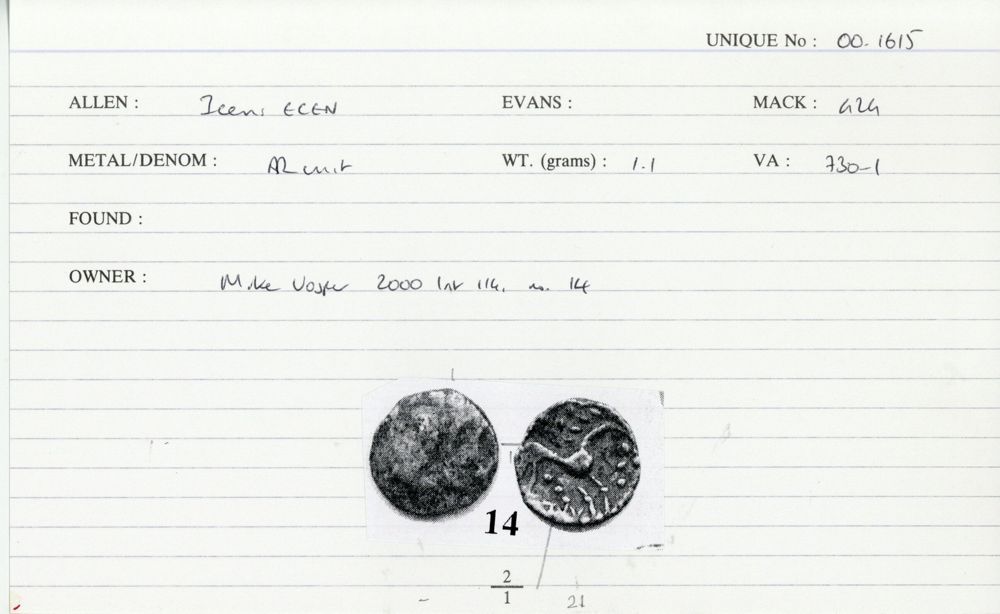 UNIQUE No : 00-1615
ALLEN : Iceni ECEN EVANS : MACK : 424
METAL/DENOM : AR unit WT. (grams) : 1.1 VA : 730-1
FOUND :
OWNER : Mike Vosper 2000 114, no. 14
14
2
1
21